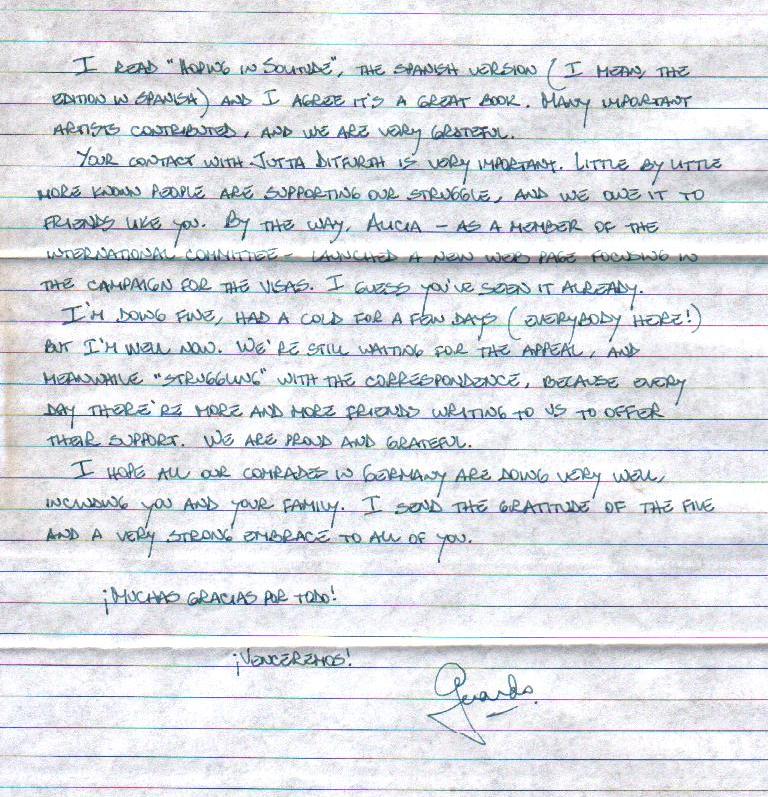 I READ "HOPING IN SOLITUDE", THE SPANISH VERSION (I MEAN, THE
EDITION IN SPANISH) AND I AGREE IT'S A GREAT BOOK. MANY IMPORTANT
ARTISTS CONTRIBUTED, AND WE ARE VERY GRATEFUL.
YOUR CONTACT WITH JUTTA DITFURTH IS VERY IMPORTANT. LITTLE BY LITTLE
MORE KNOWN PEOPLE ARE SUPPORTING OUR STRUGGLE, AND WE OWE IT TO
FRIENDS LIKE YOU. BY THE WAY, ALICIA – AS A MEMBER OF THE
INTERNATIONAL COMMITTEE – LAUNCHED A NEW WEB PAGE FOCUSING IN
THE CAMPAIGN FOR THE VISAS. I GUESS YOU'VE SEEN IT ALREADY.
I'M DOING FINE, HAD A COLD FOR A FEW DAYS (EVERYBODY HERE!)
BUT I'M WELL NOW. WE'RE STILL WAITING FOR THE APPEAL, AND
MEANWHILE "STRUGGLING" WITH THE CORRESPONDENCE, BECAUSE EVERY
DAY THERE'RE MORE AND MORE FRIENDS WRITING TO US TO OFFER
THEIR SUPPORT. WE ARE PROUD AND GRATEFUL.
I HOPE ALL OUR COMRADES IN GERMANY ARE DOING VERY WELL,
INCLUDING YOU AND YOUR FAMILY. I SEND THE GRATITUDE OF THE FIVE
AND A VERY STRONG EMBRACE TO ALL OF YOU.
¡MUCHAS GRACIAS POR TODO!
¡VENCEREMOS!
Gerardo.